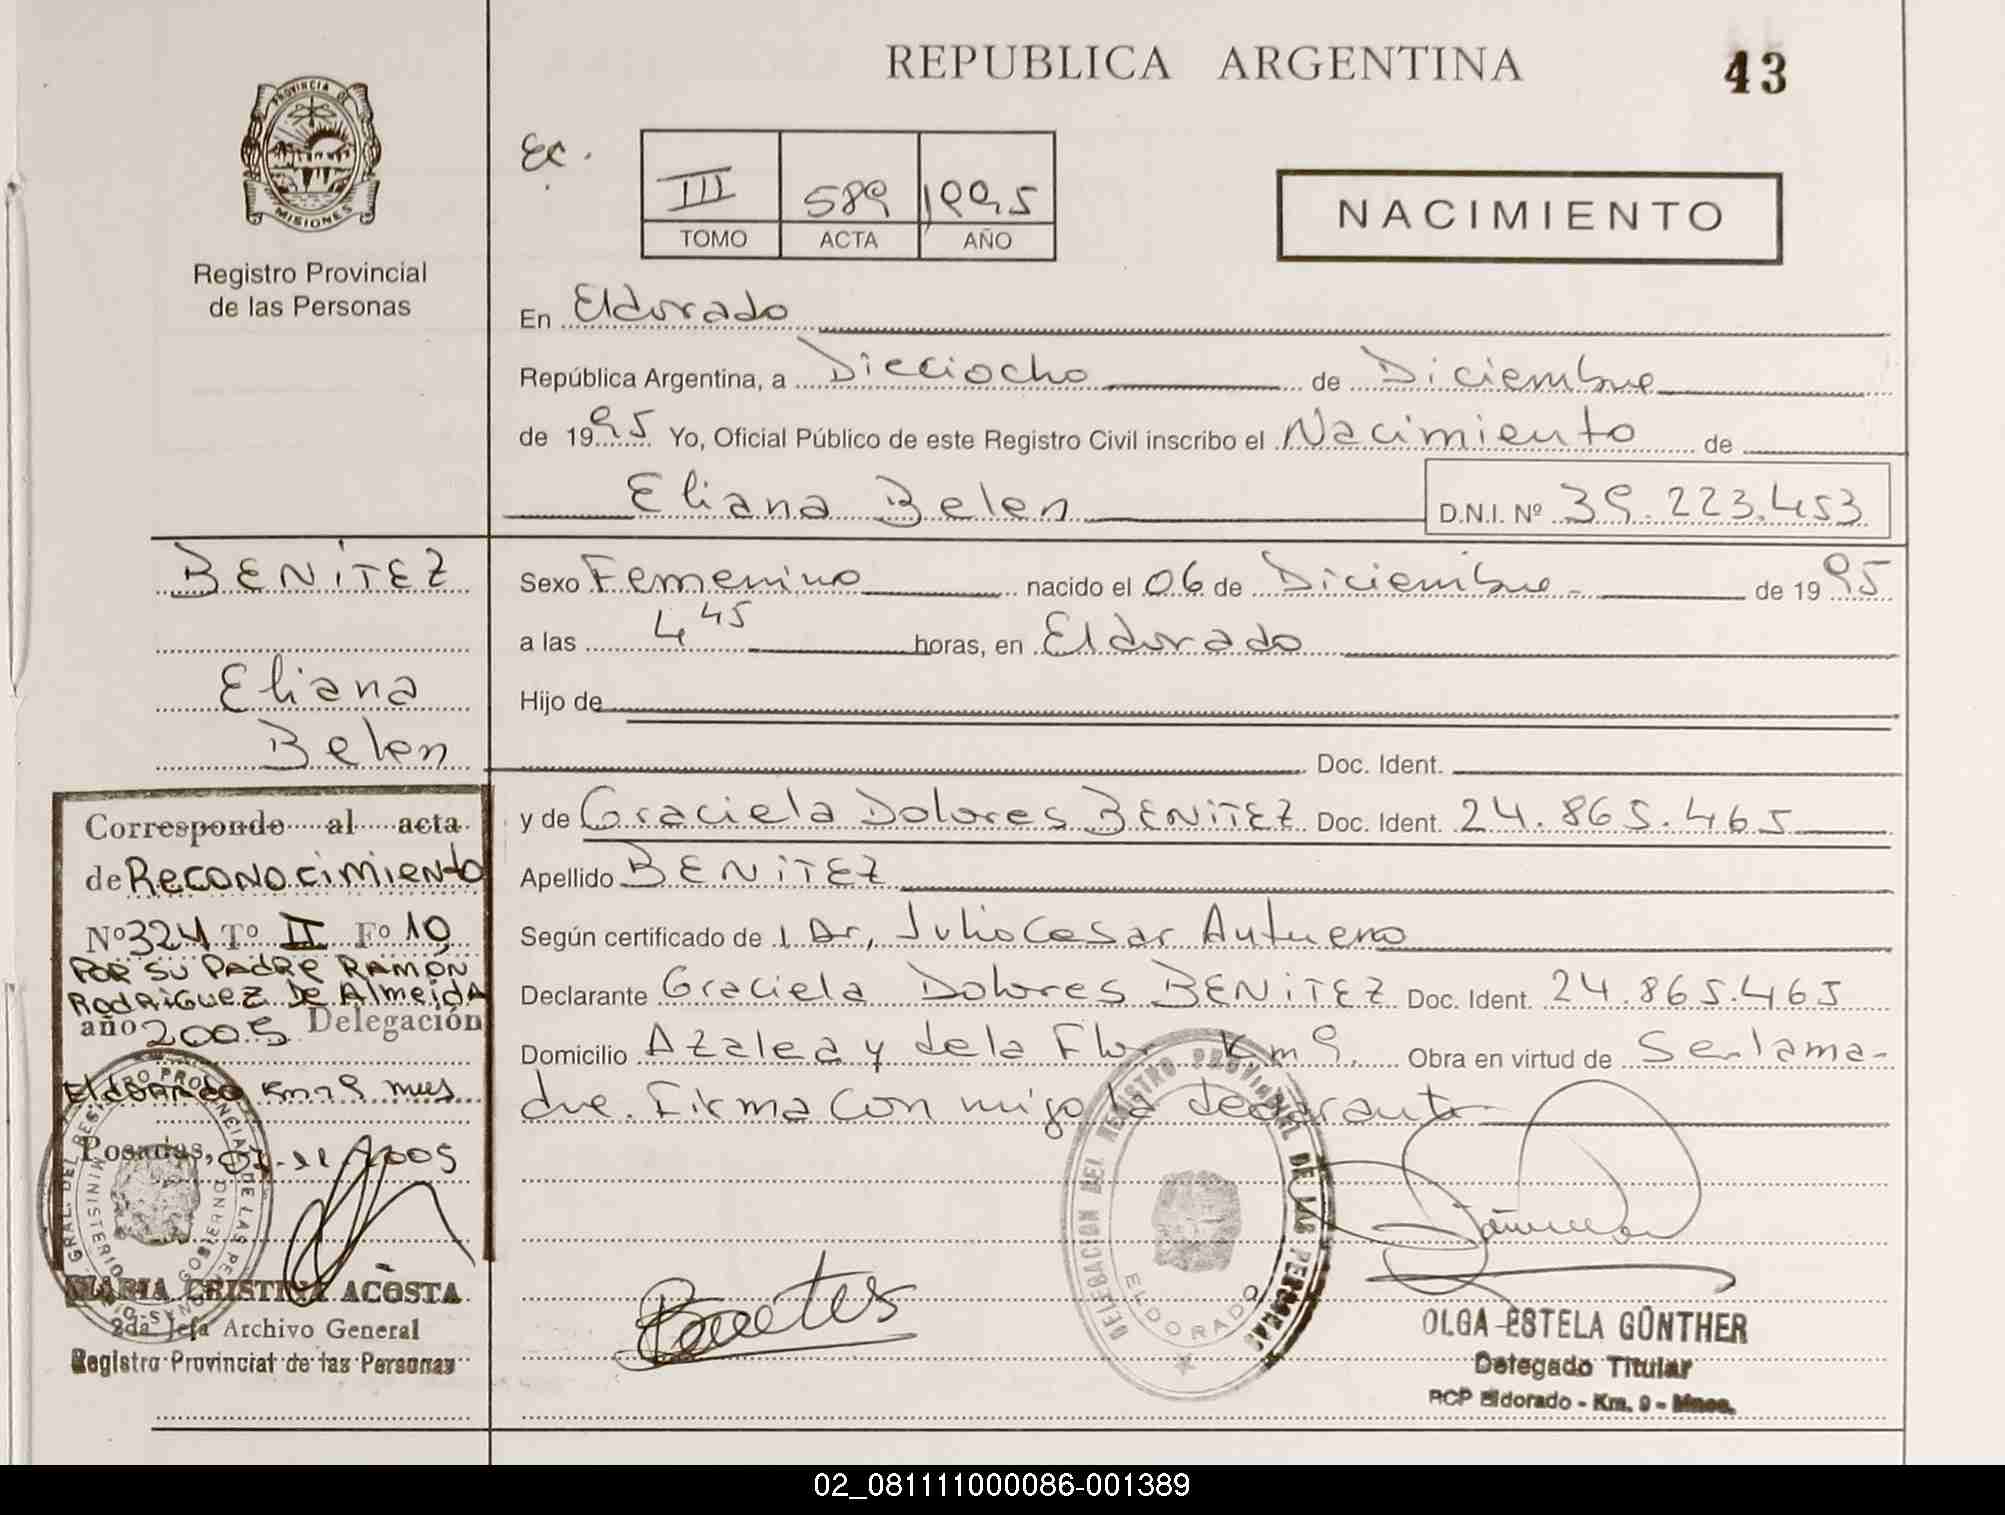 REPUBLICA ARGENTINA
43
PROVINCIA DE
MISIONES
Registro Provincial
de las Personas
Ec.
III 589 1995
TOMO ACTA AÑO
NACIMIENTO
En Eldorado
República Argentina, a Dieciocho de Diciembre
de 1995 Yo, Oficial Público de este Registro Civil inscribo el Nacimiento de
Eliana Belen D.N.I. Nº 39.223.453
BENITEZ
Eliana
Belen
Sexo Femenino nacido el 06 de Diciembre de 1995
a las 4 45 horas, en Eldorado
Hijo de
Doc. Ident.
y de Graciela Dolores BENITEZ Doc. Ident. 24.865.465
Apellido BENITEZ
Según certificado de Dr, Julio Cesar
Declarante Graciela Dolores BENITEZ Doc. Ident. 24.865.465
Domicilio Azalea y de la Flor Km 9. Obra en virtud de Ser la ma-
dre. Firma con migo la declarante
Corresponde al acta
de Reconocimiento
Nº 324 Tº II Fº 19
POR SU PADRE RAMON
RODRIGUEZ De Almeida
año 2005 Delegación
Eldorado Km 9 mnes
Posadas, 2005
MARIA CRISTINA ACOSTA
2da Jefa Archivo General
Registro Provincial de las Personas
DELEGACION DEL REGISTRO PROVINCIAL DE LAS PERSONAS
ELDORADO
OLGA ESTELA GÜNTHER
Delegado Titular
RCP Eldorado - Km. 9 - Mnes.
02_081111000086-001389